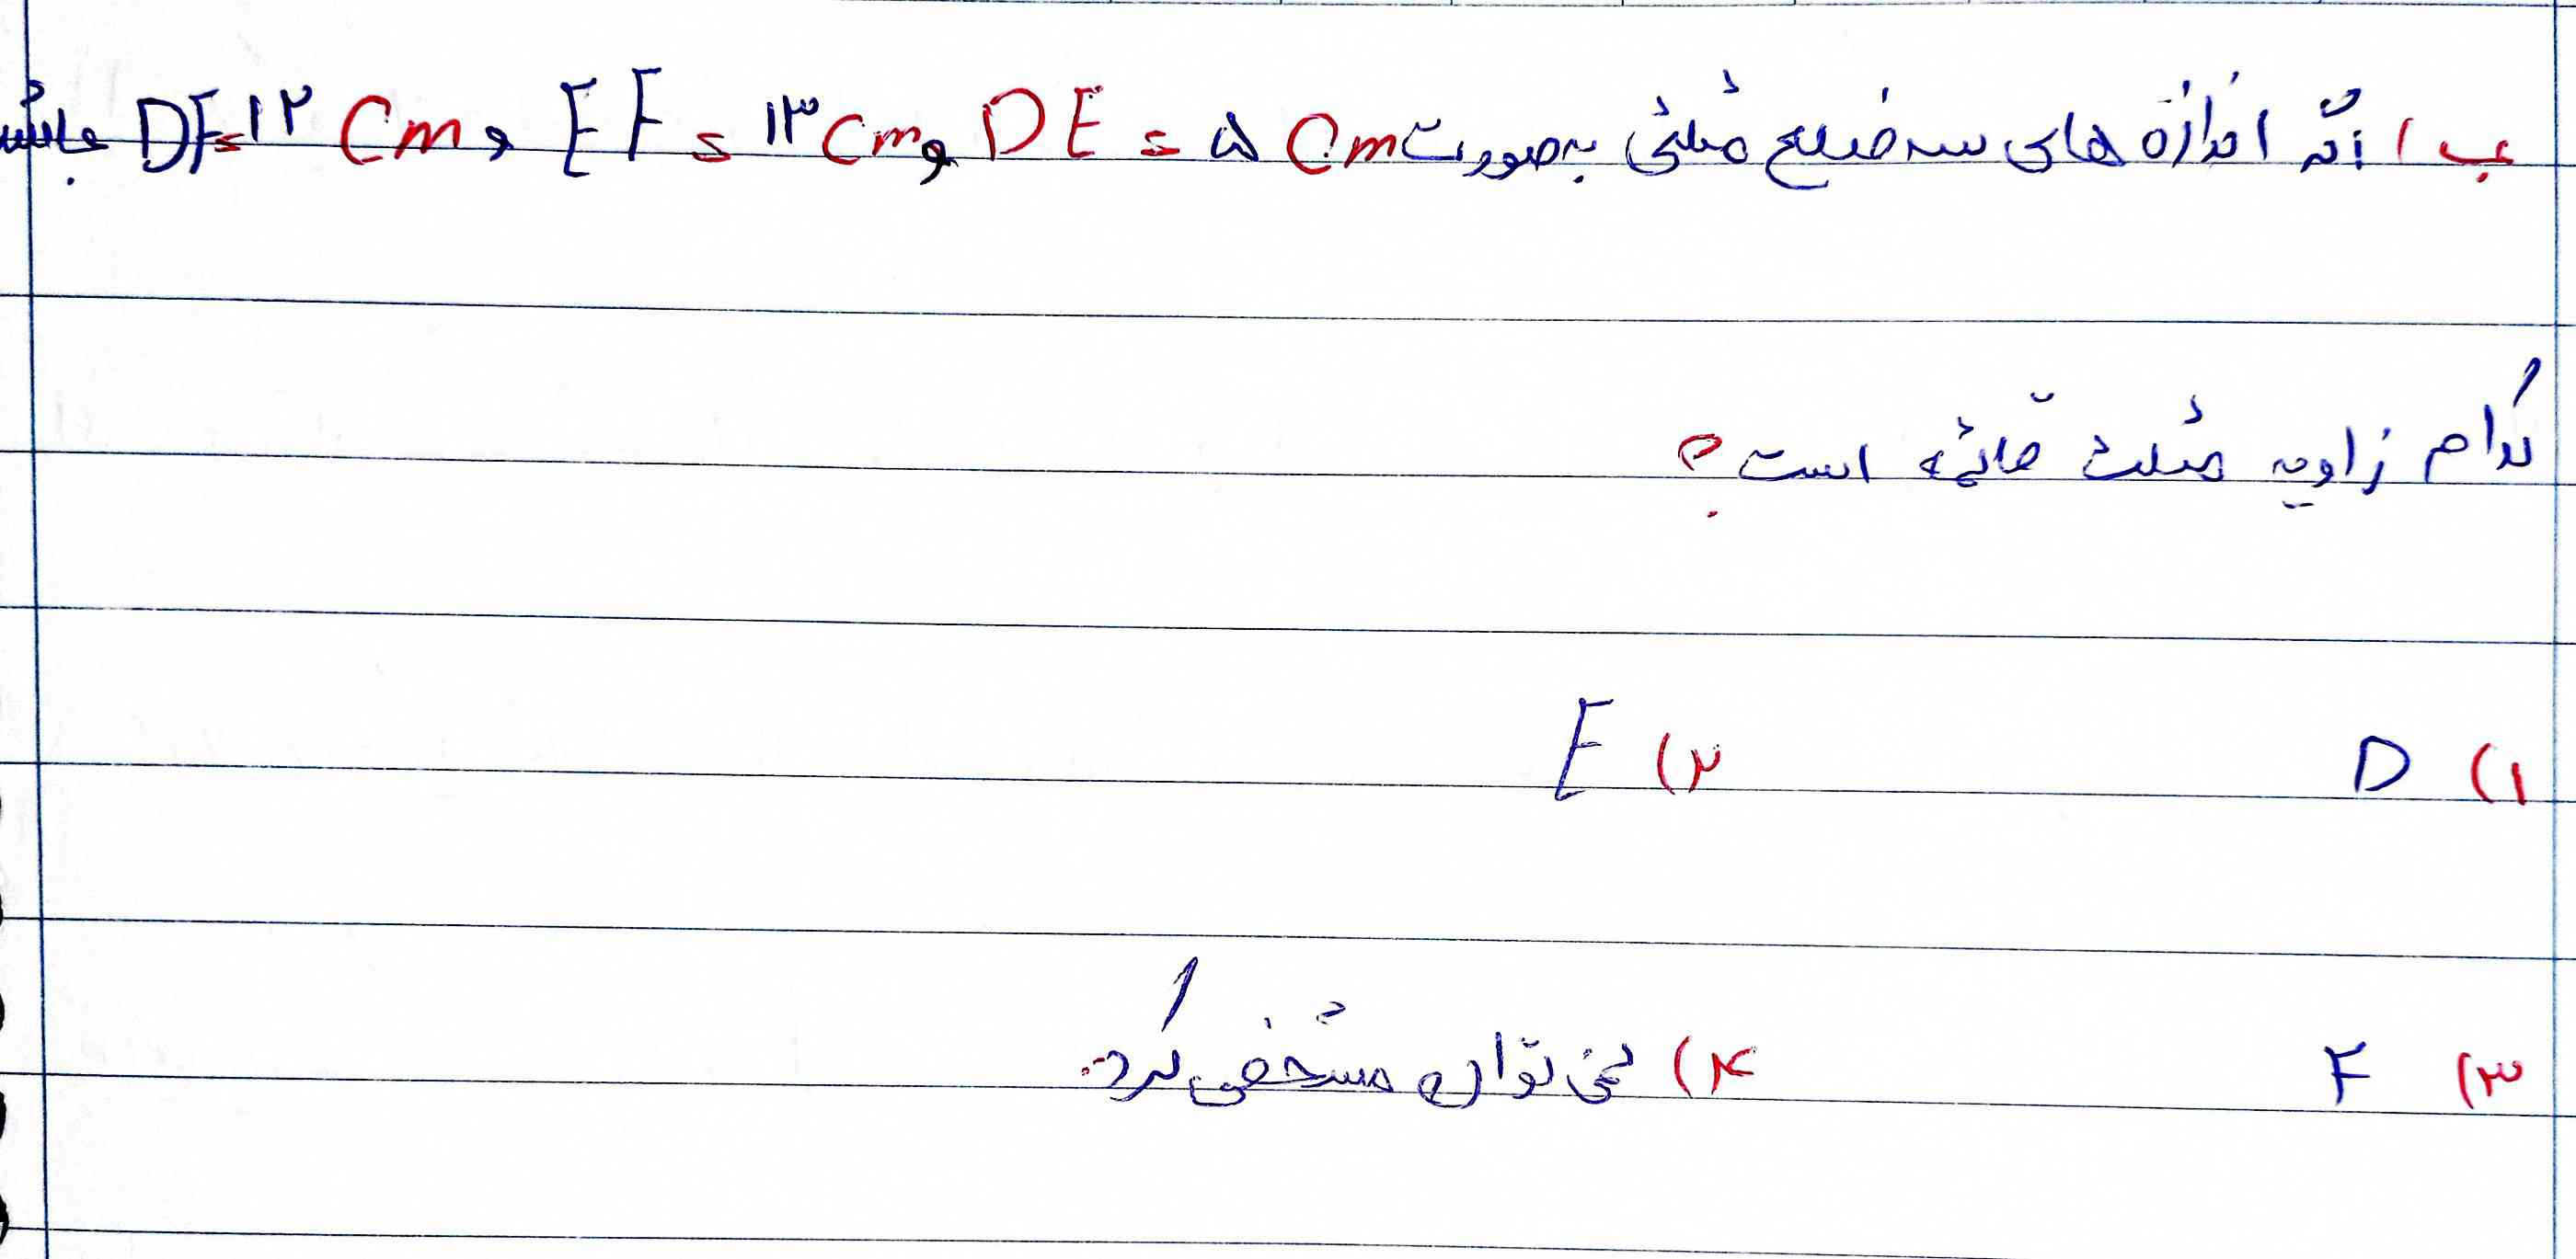 ب ) اگر اندازه های سه ضلع مثلثی به صورت DE = ۵ Cm و EF = ۱۳ Cm و DF = ۱۲ Cm باشد
کدام زاویه مثلث قائمه است؟
۱) D ۲) E
۳) F ۴) نمی توان مشخص کرد.